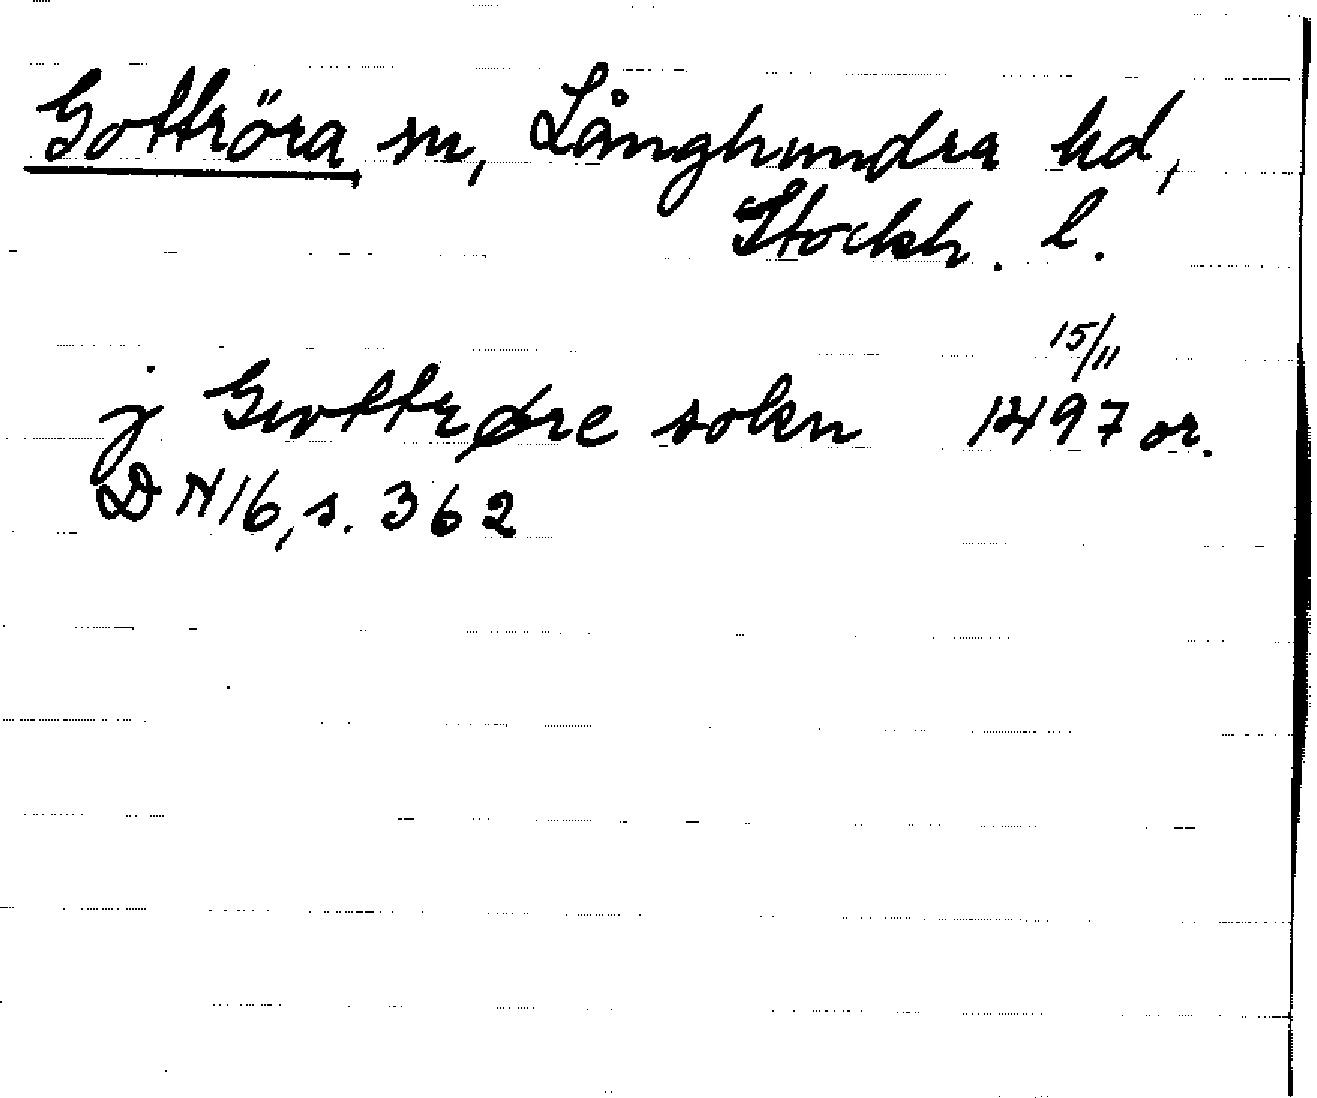 Gottröra sn, Långhundra hd,
Stockh. l.
15/11
j Gvottrøre sokn 1497 or.
DN 16, s. 362